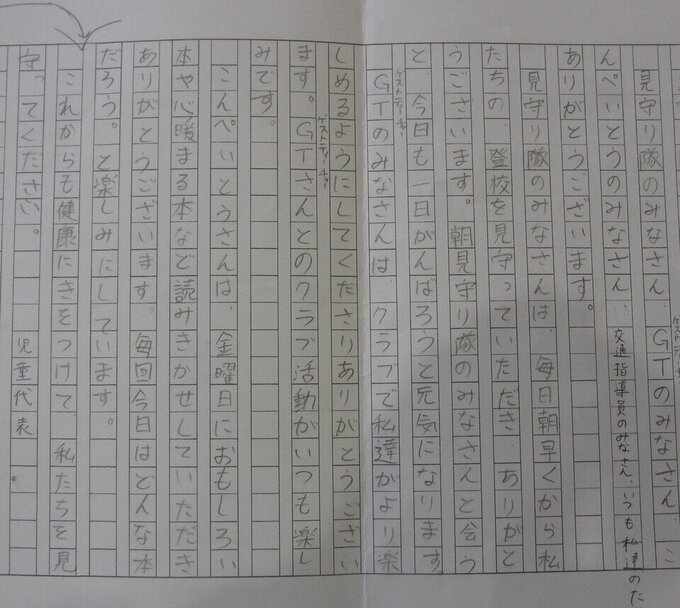 見守り隊のみなさん、GTのみなさん、こ
んぺいとうのみなさん、交通指導員のみなさん、いつも私達のた
ありがとうございます。
見守り隊のみなさんは、毎日朝早くから私
たちの、登校を見守っていただき、ありがと
うございます。朝見守り隊のみなさんと会う
と、今日も一日がんばろうと元気になります。
ゲストティーチャー
GTのみなさんは、クラブで私達がより楽
しめるようにしてくださりありがとうござい
ゲストティーチャー
ます。GTさんとのクラブ活動がいつも楽し
みです。
こんぺいとうさんは、金曜日におもしろい
本や心暖まる本など読みきかせしていただき
ありがとうございます。毎回今日はどんな本
だろう。と楽しみにしています。
これからも健康にきをつけて、私たちを見
守ってください。
児童代表